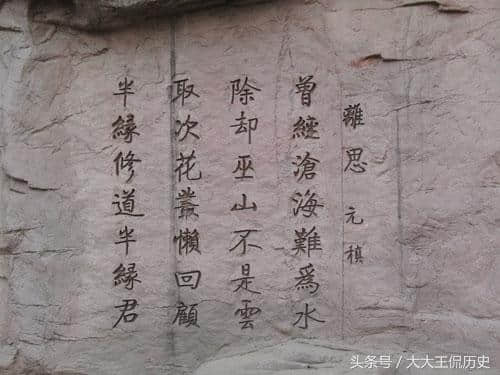 離思 元稹
曾經滄海難爲水
除却巫山不是雲
取次花叢懶回顧
半緣修道半緣君
头条号／大大王侃历史